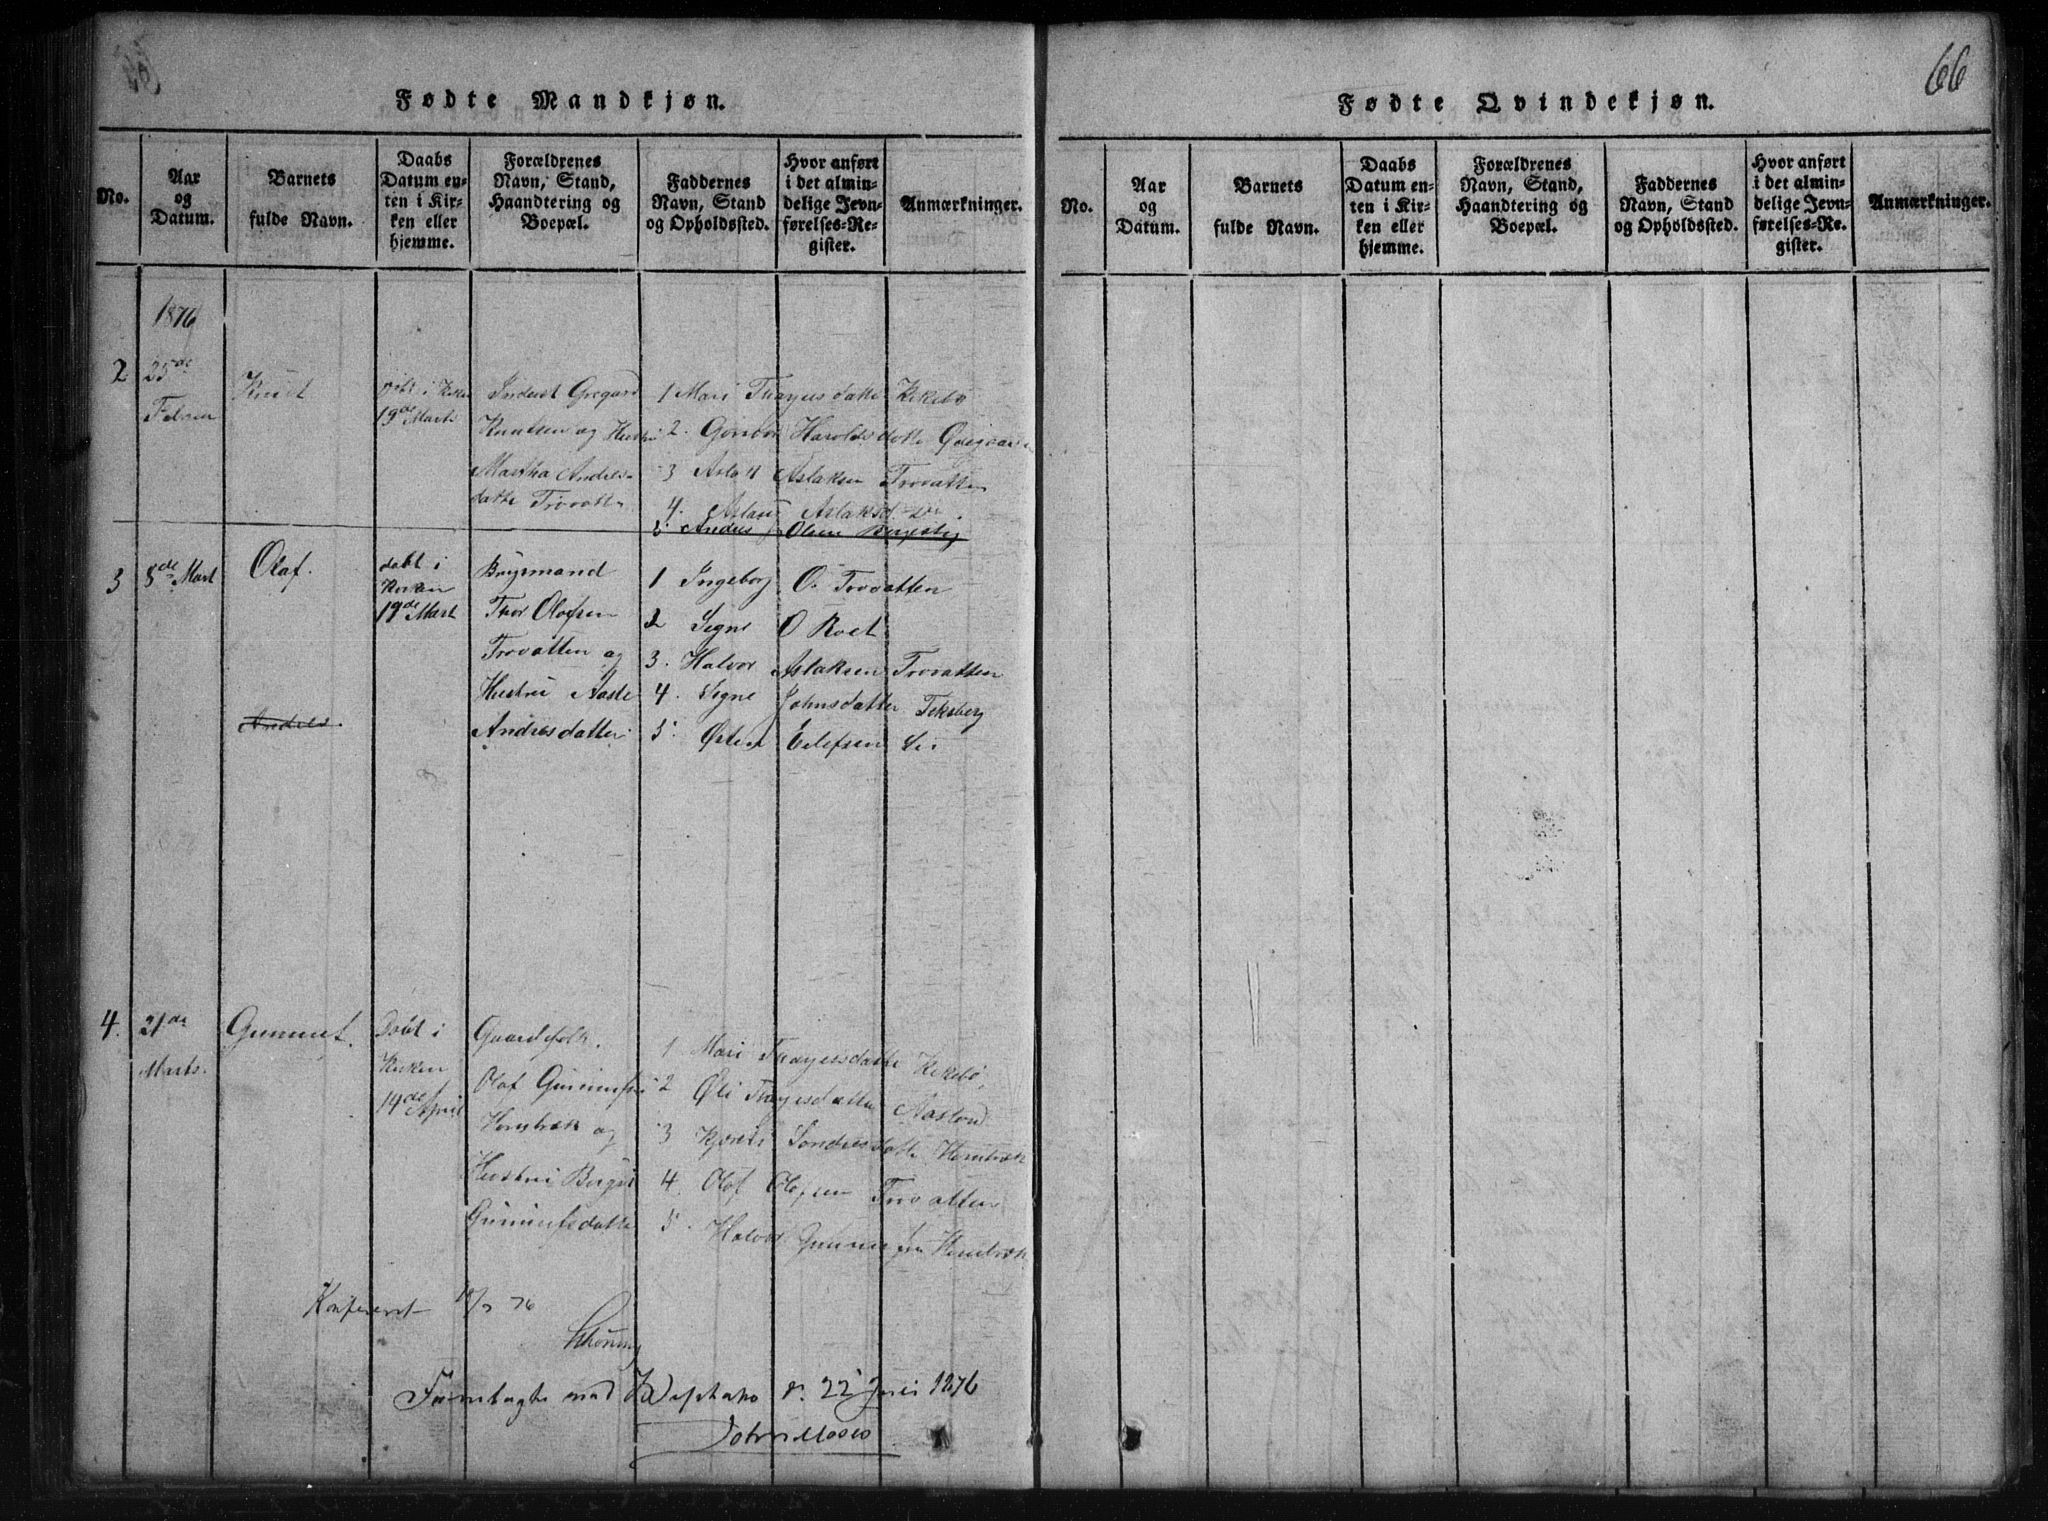 66
Fødte Mandkjøn.
No.
Aar
og
Datum.
Barnets
fulde Navn.
Daabs
Datum en-
ten i Kir-
ken eller
hjemme.
Forældrenes
Navn, Stand,
Haandtering og
Boepæl.
Faddernes
Navn, Stand
og Opholdssted.
Hvor anført
i det almin-
delige Jevn-
førelses-Re-
gister.
Anmærkninger.
1876
2
25de
Februar
Knut
19de Marts
Gregard
Knutsen og Hustru
Martha Andres-
datte Trovatten
1 Mari Tharjersdatte Kekebø
2. Gunbor Haroldsdatte
3 Aslak Aslaksen Trovatten
4. Aslau Aslaksd
5 Andres Olsen
3
8de Mart
Olaf.
Andres.
døbt i
Kirken
19de Mart
Brugsmand
Thor Olofsen
Trovatten og
Hustru Aaste
Andresdatter
1 Ingeborg O. Trovatten
2 Signe O Roet
3. Halvor Aslaksen Trovatten
4. Signe Johnsdatter Teksberg
5. Østen Eilefsen Li
4.
21de
Marts.
Gunnuf.
Døbt i
Kirken
19de April
Gaardfolk.
Olof Gunnufsen
Hornbæk og
Hustru Birgit
Gunnufsdatte
1 Mari Tharjersdatte Kekebø,
2 Øli Tarjesdatte
3 Sondresdatte
4. Olof Olofsen Trovatten
5. Halvor Gunnufsen
Konfereret 10/7 76
Schøning
Fremlagte ved d. 22 Juni 1876
Fødte Qvindekjøn.
No.
Aar
og
Datum.
Barnets
fulde Navn.
Daabs
Datum en-
ten i Kir-
ken eller
hjemme.
Forældrenes
Navn, Stand,
Haandtering og
Boepæl.
Faddernes
Navn, Stand
og Opholdssted.
Hvor anført
i det almin-
delige Jevn-
førelses-Re-
gister.
Anmærkninger.